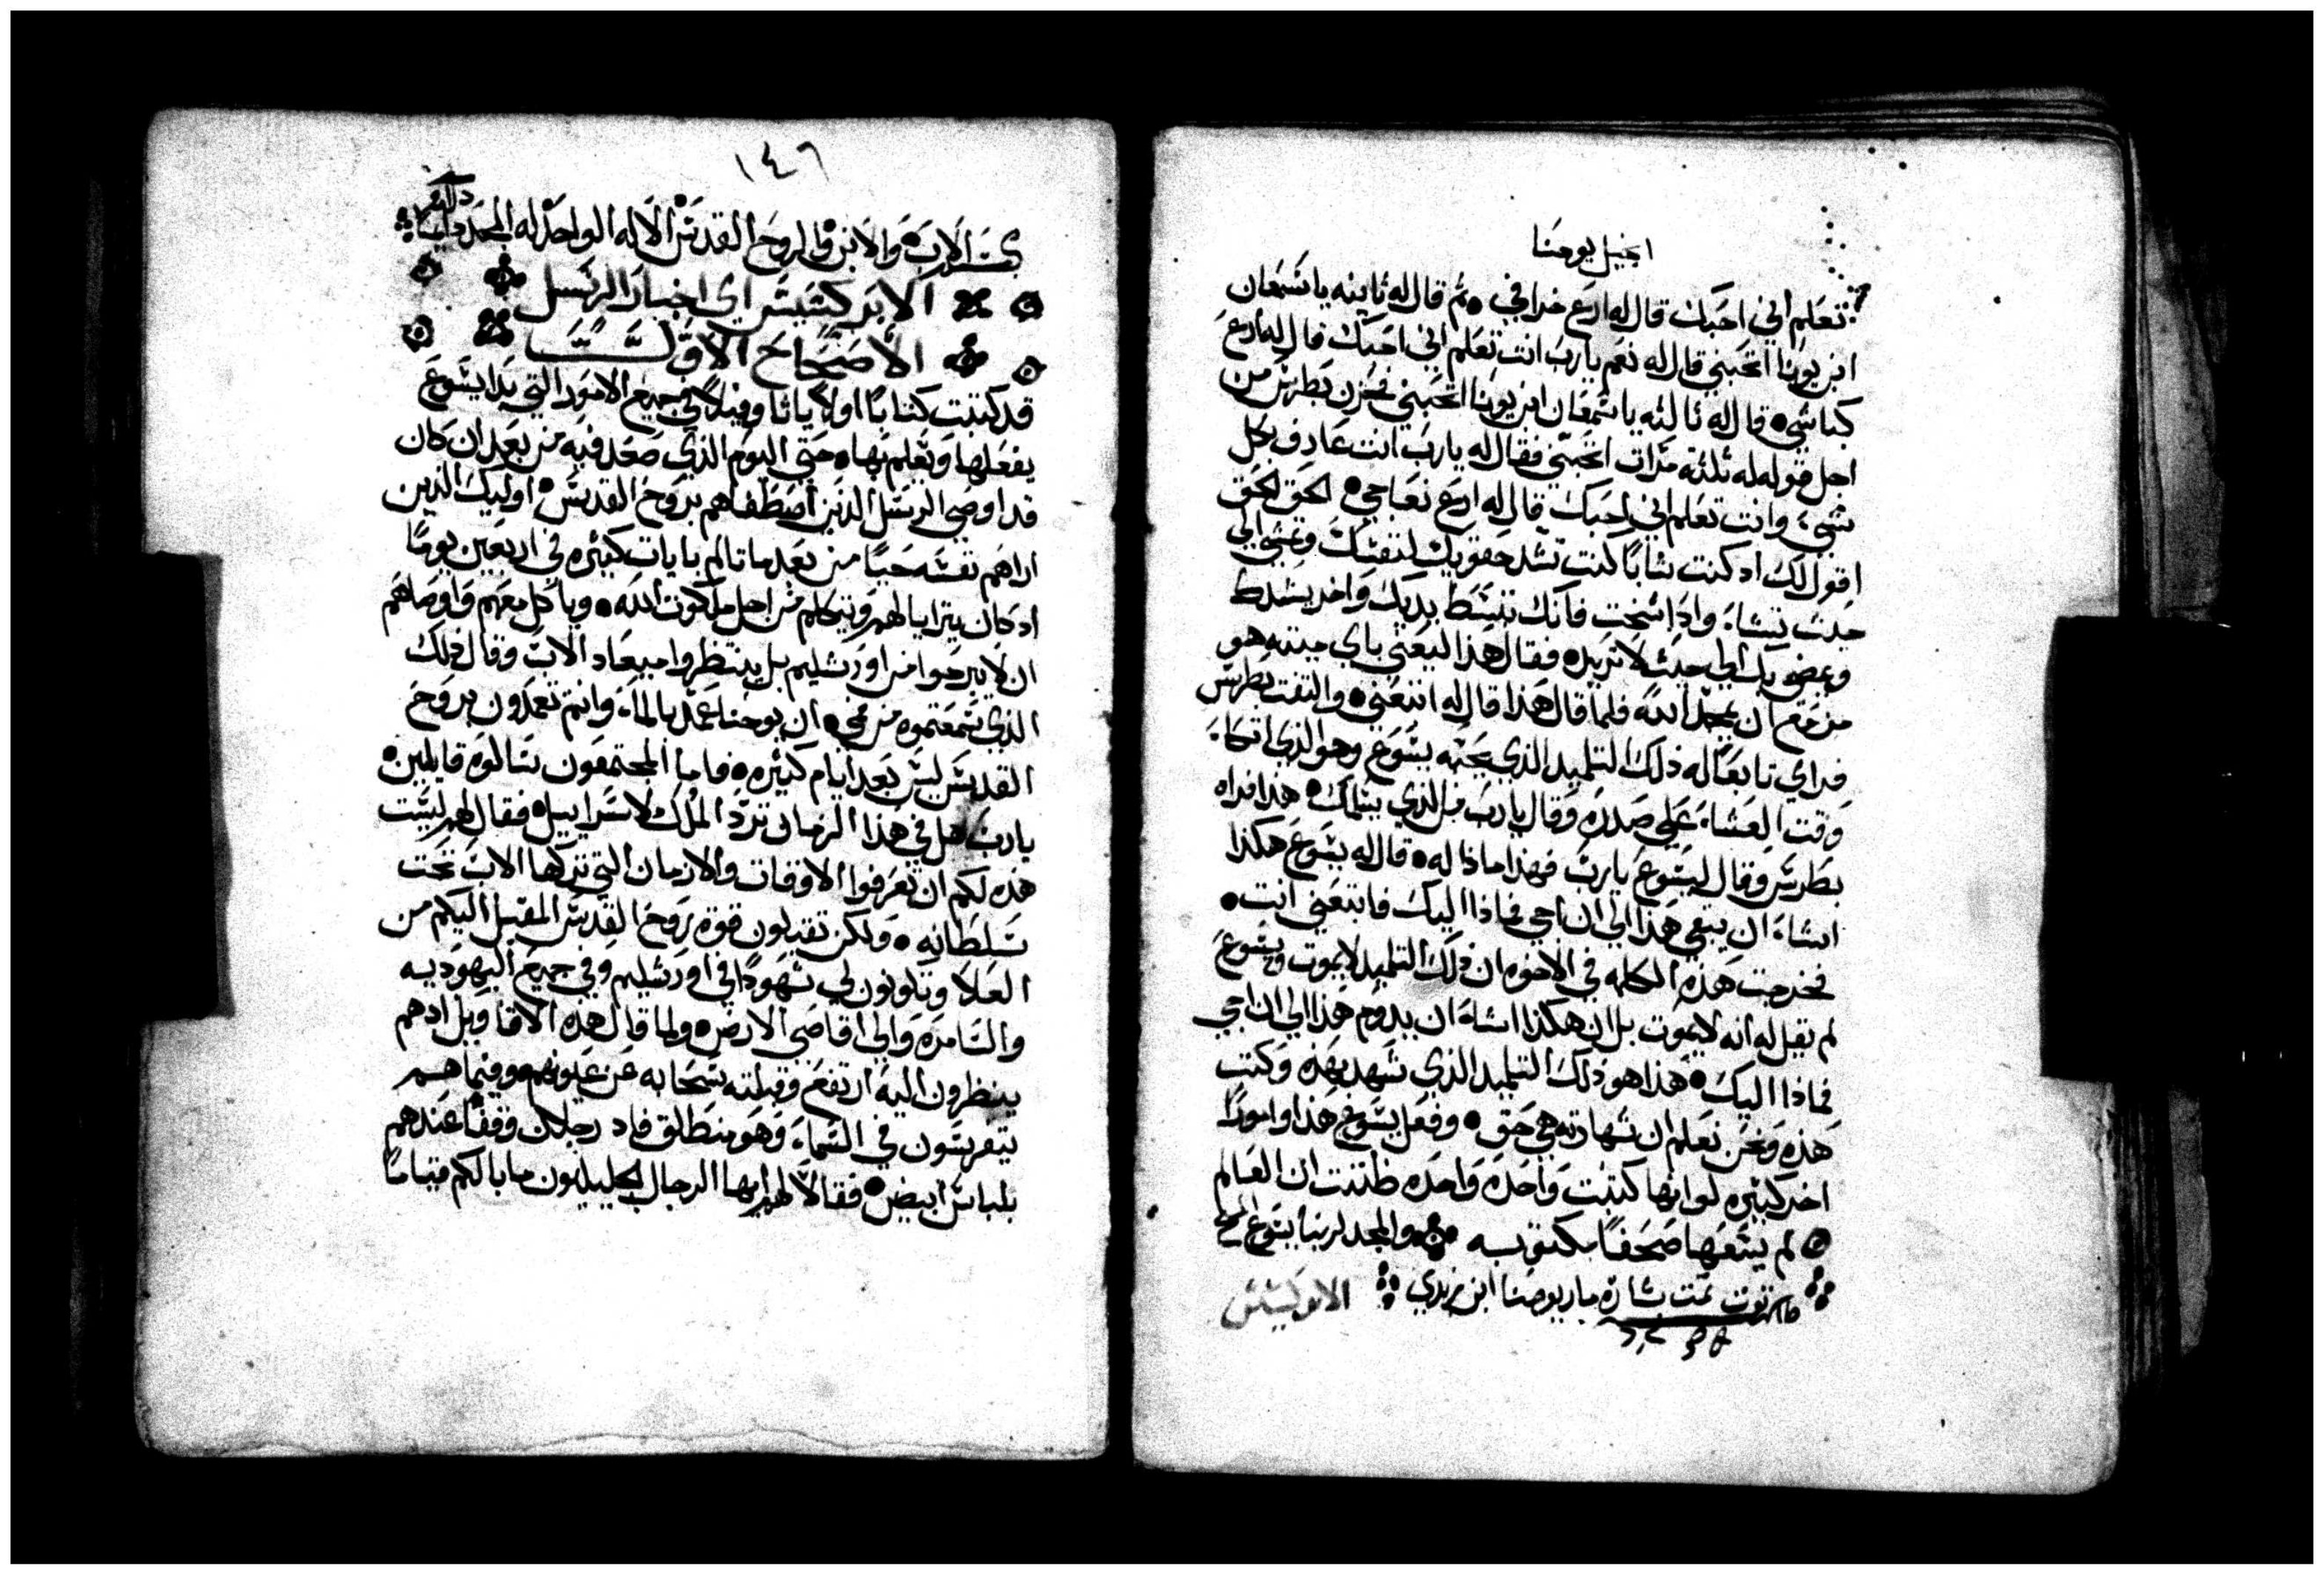 انجيل يوحنا
تعلم اني احبك قال له ارع خرافي ٥ ثم قال له ثاينه يا شمعان
ابن يونا اتحبني قال له نعم يارب انت تعلم اني احبك قال له ارع
كباشي ٥ قال له ثالثه يا شمعان ابن يونا اتحبني فحزن بطرس من
اجل قوله له ثلثة مرات اتحبني فقال له يارب انت عارف بكل
شي وانت تعلم اني احبك قال له ارع نعاجي ٥ الحق الحق
اقول لك اد كنت شابا كنت تشد حقويك لنفسك وتمشي الي
حيث تشاء واذا شخت فانك تبسط يديك واخر يشدط
ويمضي بك الي حيث لا تريد ٥ فقال هذا ليعني باي ميتة هو
مزمع ان يمجد الله فلما قال هذا قال له اتبعني ٥ والتفت بطرس
فراي تابعا له ذلك التلميد الذي يحبه يسوع وهو الذي اتكاء
وقت العشاء علي صدره وقال يارب من الذي يسلمك ٥ هذا فراه
بطرس وقال ليسوع يارب فهذا ماذا له ٥ قال له يسوع هكذا
اشاء ان يبقي هذا الي ان اجي فماذا اليك فاتبعني انت ٥
فخرجت هذه الكلمه في الاخوه ان ذلك التلميد لا يموت ويسوع
لم يقل له انه لا يموت بل ان هكذا اشاء ان يدوم هذا الي ان اجي
فماذا اليك ٥ هذا هو ذلك التلميد الذي شهد بهذه وكتب
هذه ونحن نعلم ان شهادته هي حق ٥ وفعل يسوع هذا وامورا
اخر كثيره لو انها كتبت واحده واحده ظننت ان العالم
لم يسعها صحفا مكتوبه والمجد لربنا يسوع
تمت بشارة مار يوحنا ابن زبدي الابركسيس
١٤٦
الاب والابن والروح القدس الاله الواحد له المجد دايما
الابركسيس اي اخبار الرسل
الاصحاح الاول
قد كتبت كتابا اولا يا ثاوفيلا في جميع الامور التي بدا يسوع
يفعلها ويعلم بها ٥ حتي اليوم الذي صعد فيه من بعد ان كان
قد اوصي الرسل الذين اصطفاهم بروح القدس ٥ اوليك الذين
اراهم نفسه حيا من بعد ما تالم بايات كثيره في اربعين يوما
اد كان يترايا لهم ويتكلم من اجل ملكوت الله ٥ وياكل معهم واوصاهم
ان لا يبرحوا من اورشليم بل ينتظروا ميعاد الاب وقال ذلك
الذي سمعتموه من في ٥ ان يوحنا عمد بالماء وانتم تعمدون بروح
القدس ليس بعد ايام كثيره ٥ فاما المجتمعون سالوه قايلين ٥
يارب هل في هذا الزمان ترد الملك لاسراييل ٥ فقال لهم ليست
هذه لكم ان تعرفوا الاوقات والازمان التي تركها الاب تحت
سلطانه ٥ ولكن تقبلون قوة روح القدس المقبل اليكم من
العلا وتكونون لي شهودا في اورشليم وفي جميع اليهوديه
والسامره والي اقاصي الارض ٥ ولما قال هذه الاقاويل ادهم
ينظرون اليه ارتفع وقبلته سحابه عن عيونهم ٥ وفيما هم
يتفرسون في السماء وهو منطلق فاد رجلان وقفا عندهم
بلباس ابيض ٥ فقالا لهم ايها الرجال الجليليون ما بالكم قياما